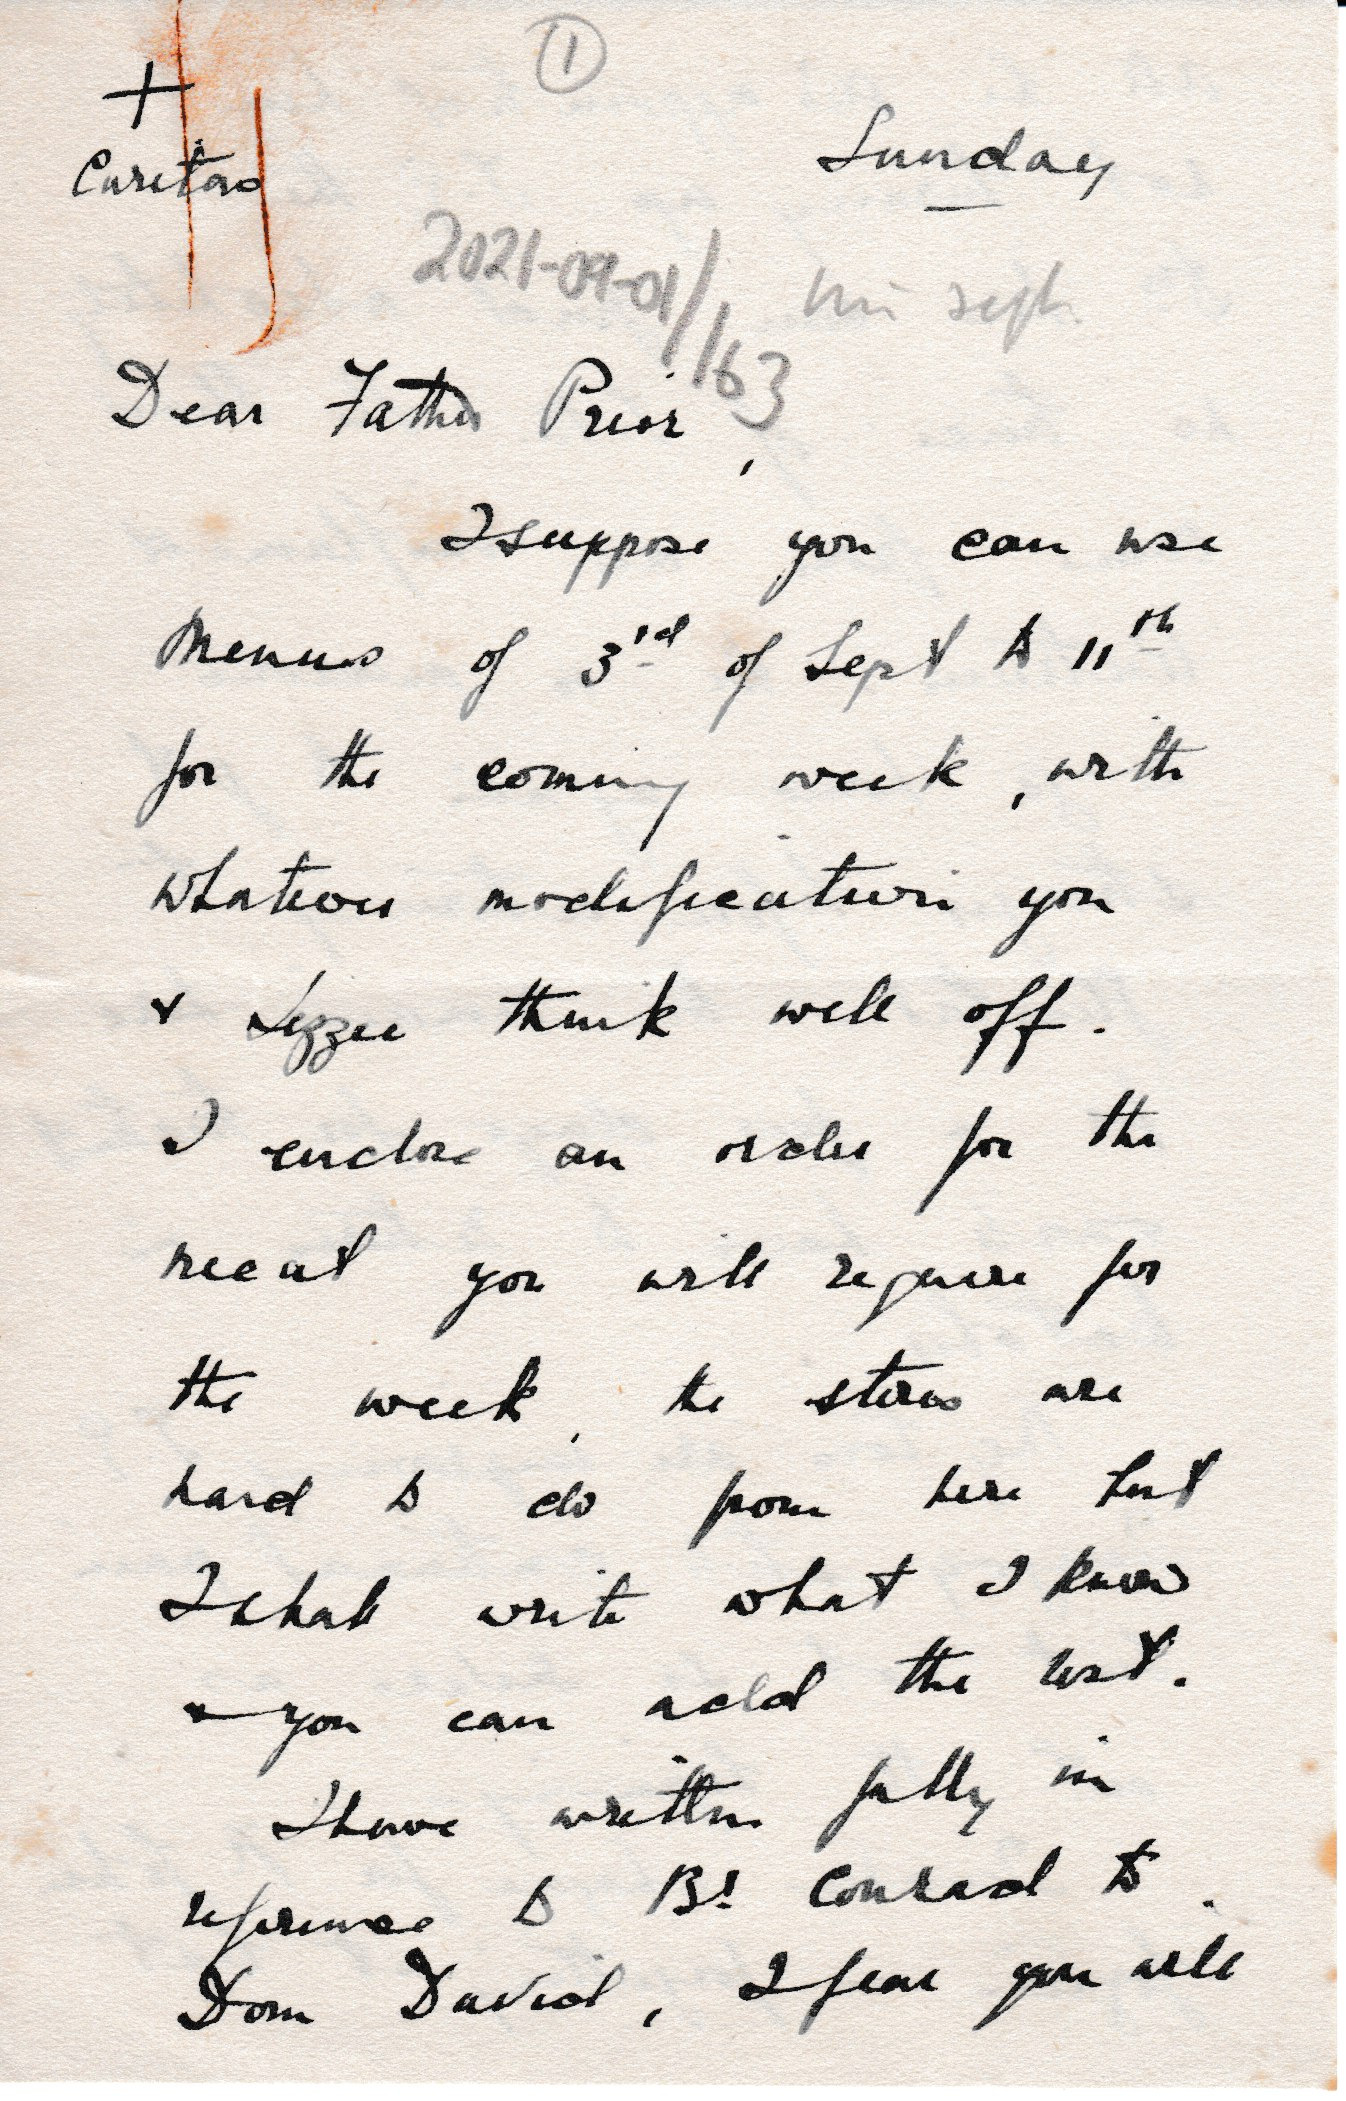 1
+
Caritas
Sunday
2021-09-01/163
Dear Father Prior,
I suppose you can use
Menus of 3rd of Sept to 11th
for the coming week, with
whatever modification you
& Lizzie think well off.
I enclose an order for the
meat you will require for
the week, the stores are
hard to do from here but
I shall write what I know
& you can add the rest.
I have written fully in
reference to Br Conrad to
Dom David, I fear you will